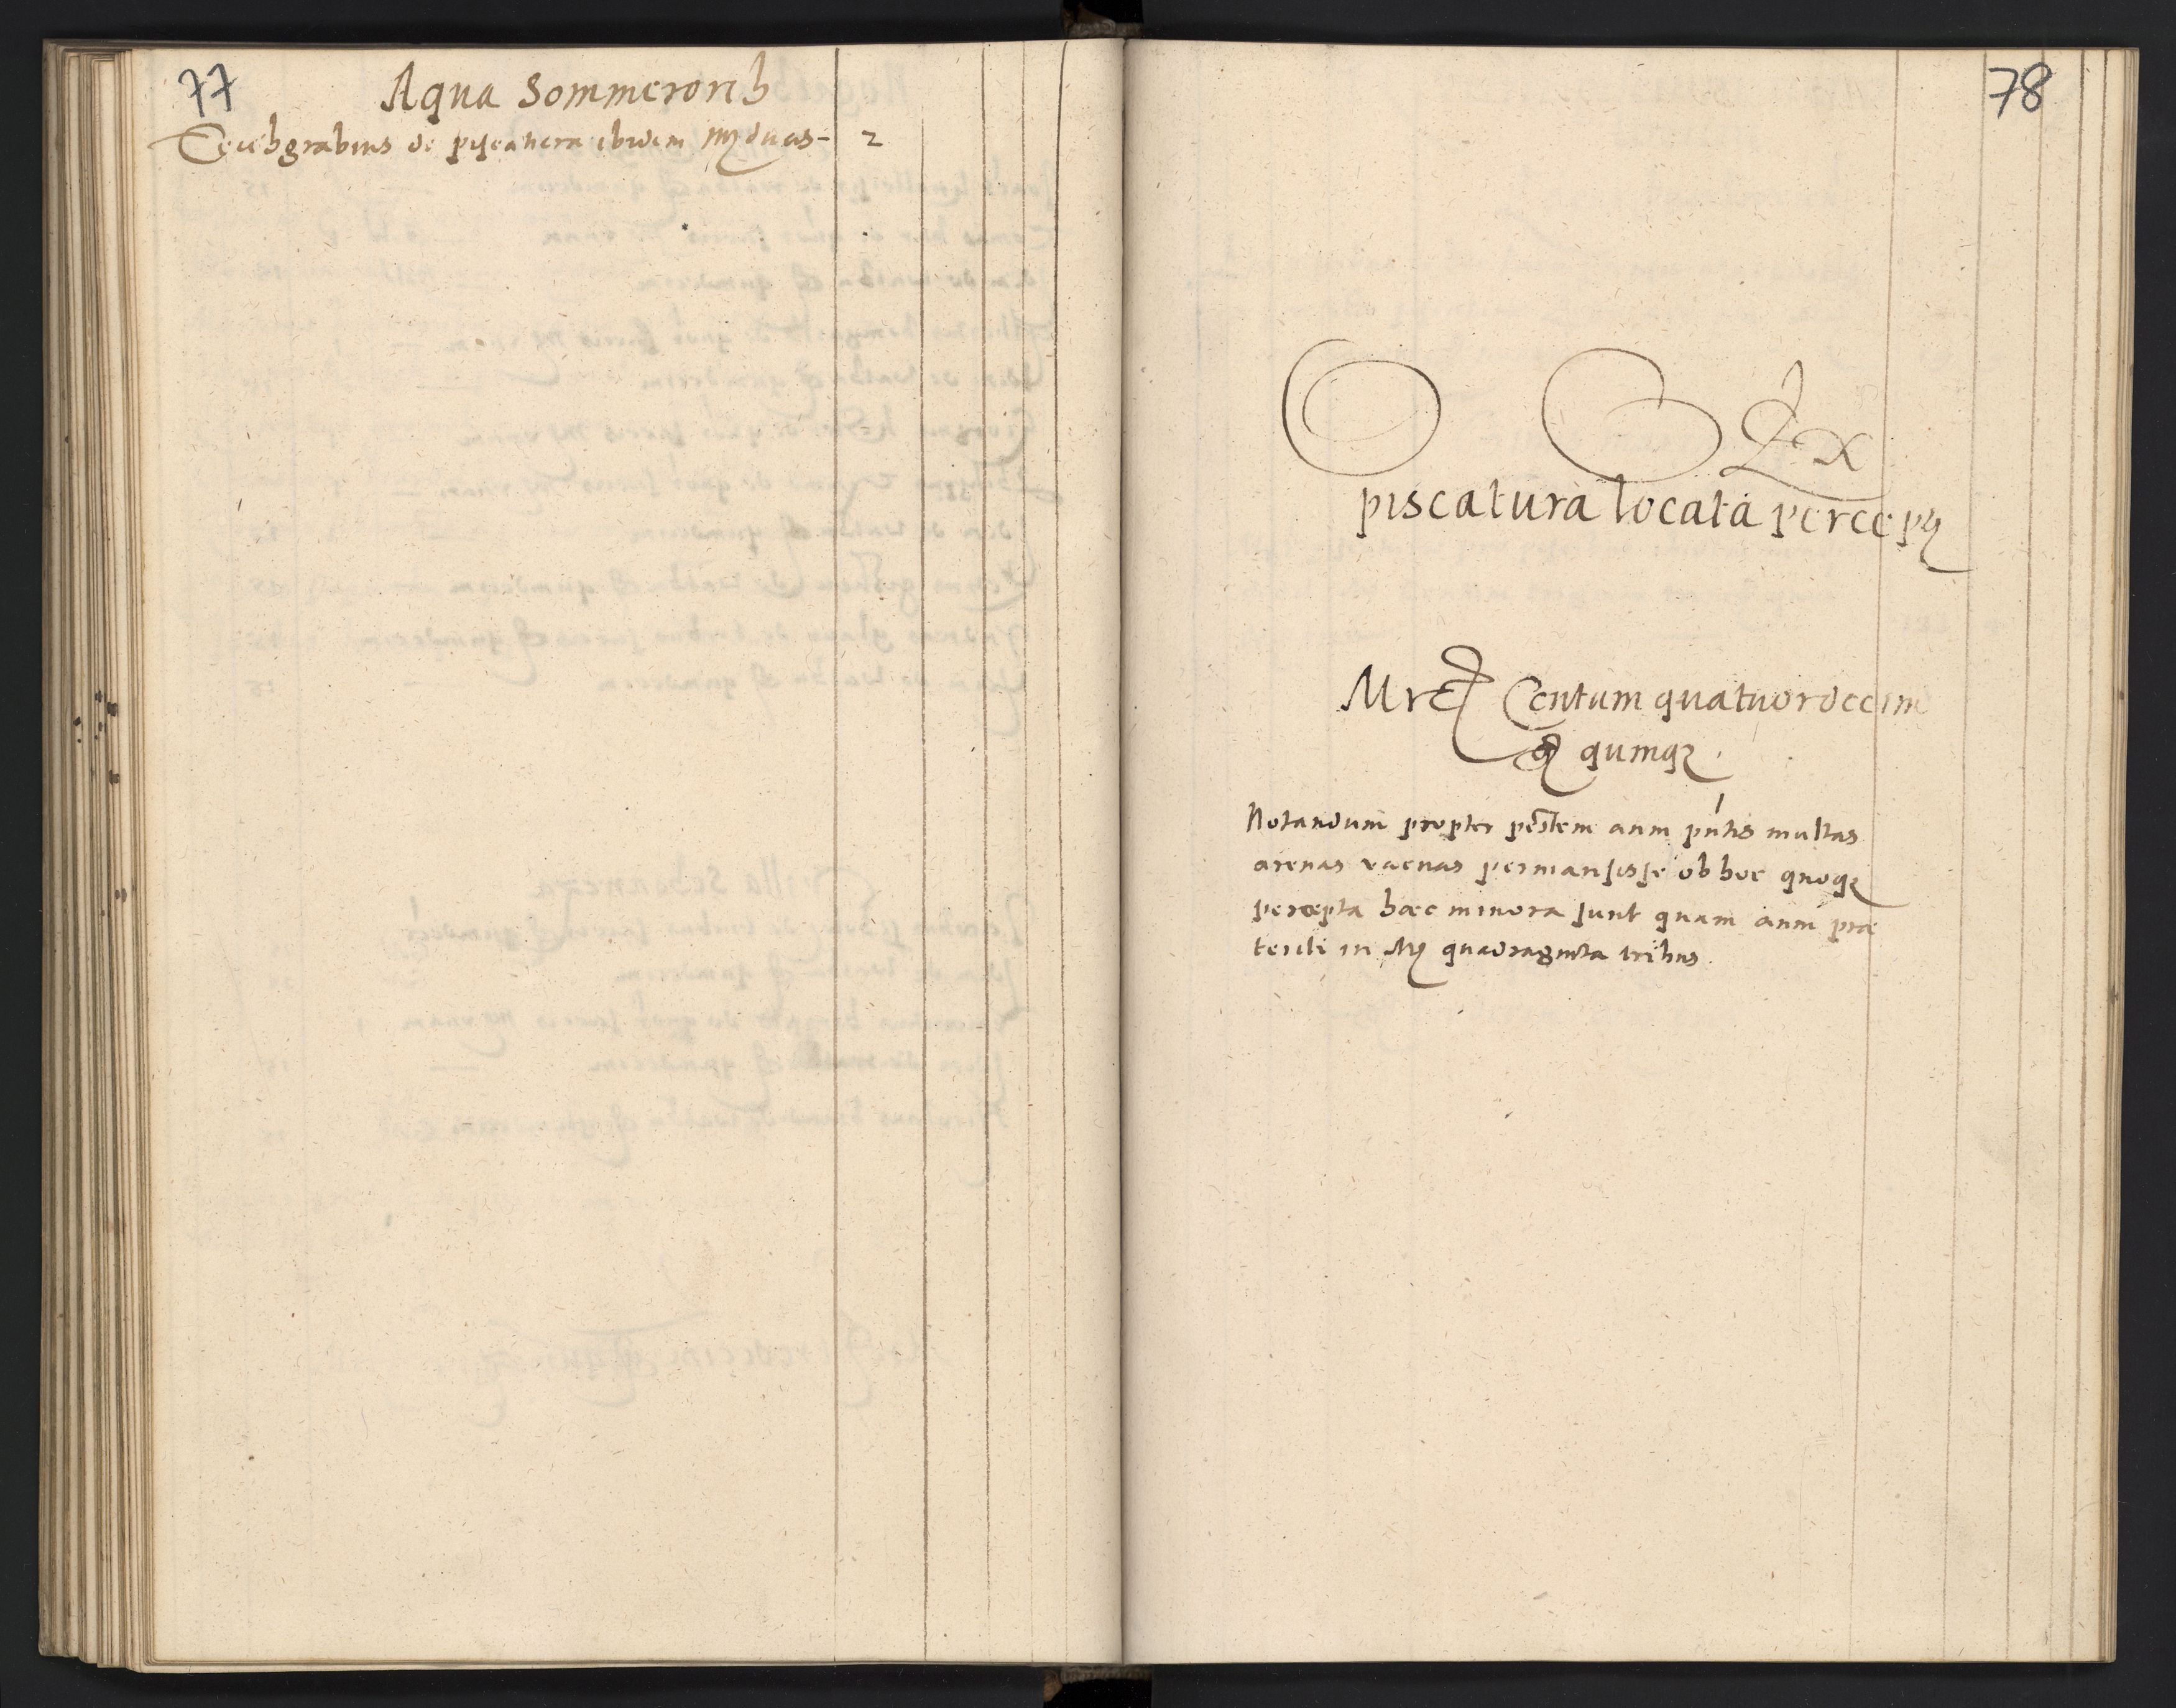 77
Aqua Sommerortb
Teichgrabius de piscatura ibidem mr duas - 2
78
Ex
piscatura locata percepi
Mr et Centum quatuordecim
et quinqz
Notandum propter pestem anni pntis multas
arenas vacuas permansisse ob hoc quoqz
percepta haec minora sunt quam anni prae
teriti in Mr quadraginta tribus.